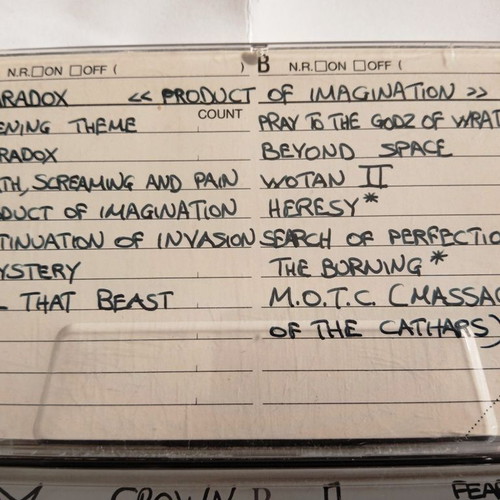 N.R.☐ON ☐OFF ( ) B N.R.☐ON ☐OFF (
RADOX << PRODUCT OF IMAGINATION >>
COUNT
ENING THEME
RADOX
TH, SCREAMING AND PAIN
DUCT OF IMAGINATION
TINUATION OF INVASION
YSTERY
L THAT BEAST
PRAY TO THE GODZ OF WRAT
BEYOND SPACE
WOTAN II
HERESY*
SEARCH OF PERFECTIO
THE BURNING *
M.O.T.C. (MASSAC
OF THE CATHARS)
CROWN B II
FEAR